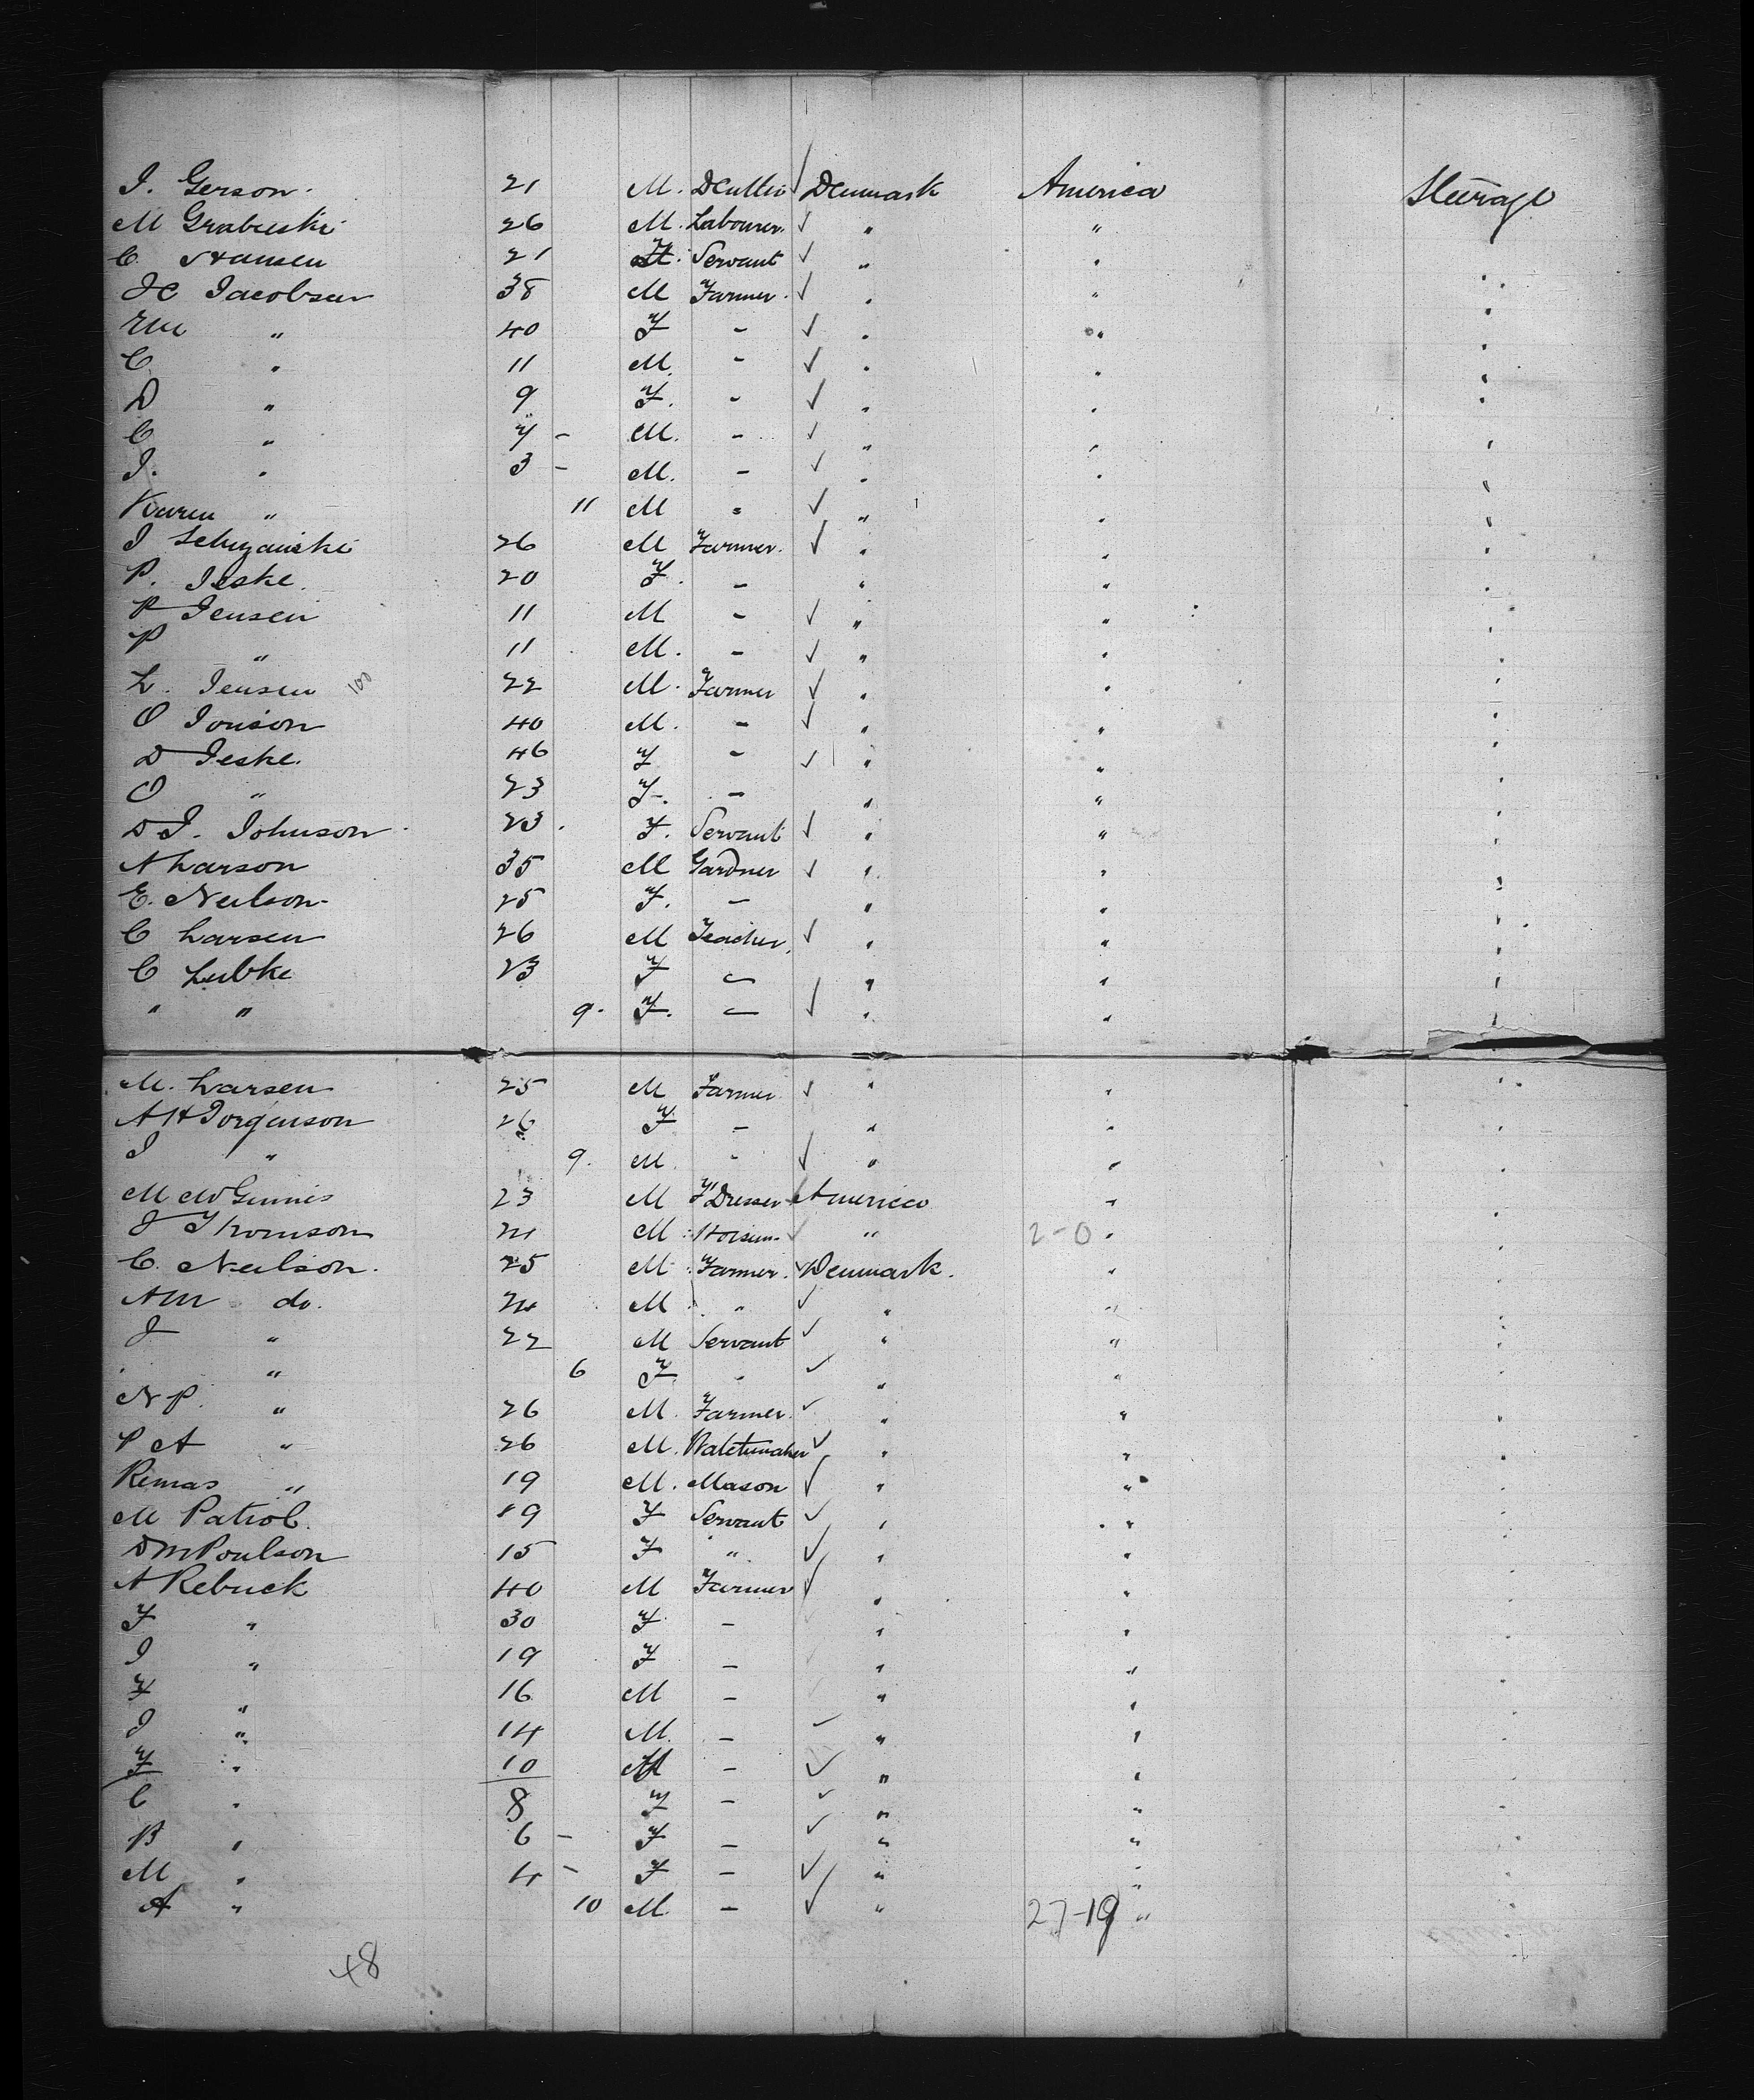 I. Gerson. 21 M. DCutter ✓ Denmark America Steerage
M Grabuski 26 M. Labourer. ✓ " "
C. Hansen 21 Servant ✓ " " "
JC Jacobsen 38 M Farmer. ✓ " " "
EM " 40 F - ✓ " " "
C. " 11 M. - ✓ " " "
D " 9 F. - ✓ " " "
C " 7 - M. - ✓ " " "
I. " 3 - M. - ✓ " " "
Karen " 11 M " ✓ " " "
I 26 M Farmer. ✓ " " "
P. Jeske. 20 F. - " " "
P Jensen 11 M - ✓ " " "
P " 11 M. - ✓ " " "
L. Jensen 100 22 M. Farmer ✓ " " "
O Jonson 40 M. - ✓ " " "
D Jeske. 46 F - ✓ " " "
O " 23 F. - " " "
D J. Johnson 23. F. Servant ✓ " " "
A Larson 35 M Gardner ✓ " " "
E. Neilson 25 F. - " " "
C Larsen 26 M Teacher. ✓ " " "
C Lubke 23 F - " " "
" " 9. F. - ✓ " " "
M. Larsen 25 M Farmer ✓ " " "
A H Jorgenson 26 F - " " "
I " 9. M - ✓ " " "
M McGinnis 23 M F Dresser America " "
J Thomson 24 M ✓ " 2-0 " "
C. Neilson. 25 M Farmer. ✓ Denmark. " "
AM do. 24 M " ✓ " " "
J " 22 M Servant ✓ " " "
" " 6 F. " ✓ " " "
N P. " 26 M. Farmer. ✓ " " "
P A " 26 M. Watchmaker ✓ " " "
Remas " 19 M. Mason ✓ " " "
M Patrob. 19 F Servant ✓ " " "
DM Poulson 15 F " ✓ " " "
A Rebuck 40 M Farmer ✓ " " "
F " 30 F. - " " "
I " 19 F - " " "
F " 16 M - " " "
I " 14 M. - ✓ " " "
F " 10 M - ✓ " " "
C " 8 F - ✓ " " "
B " 6 - F - ✓ " " "
M " 4 - F - ✓ " " "
A " 10 M. - ✓ " 27-19 " "
48